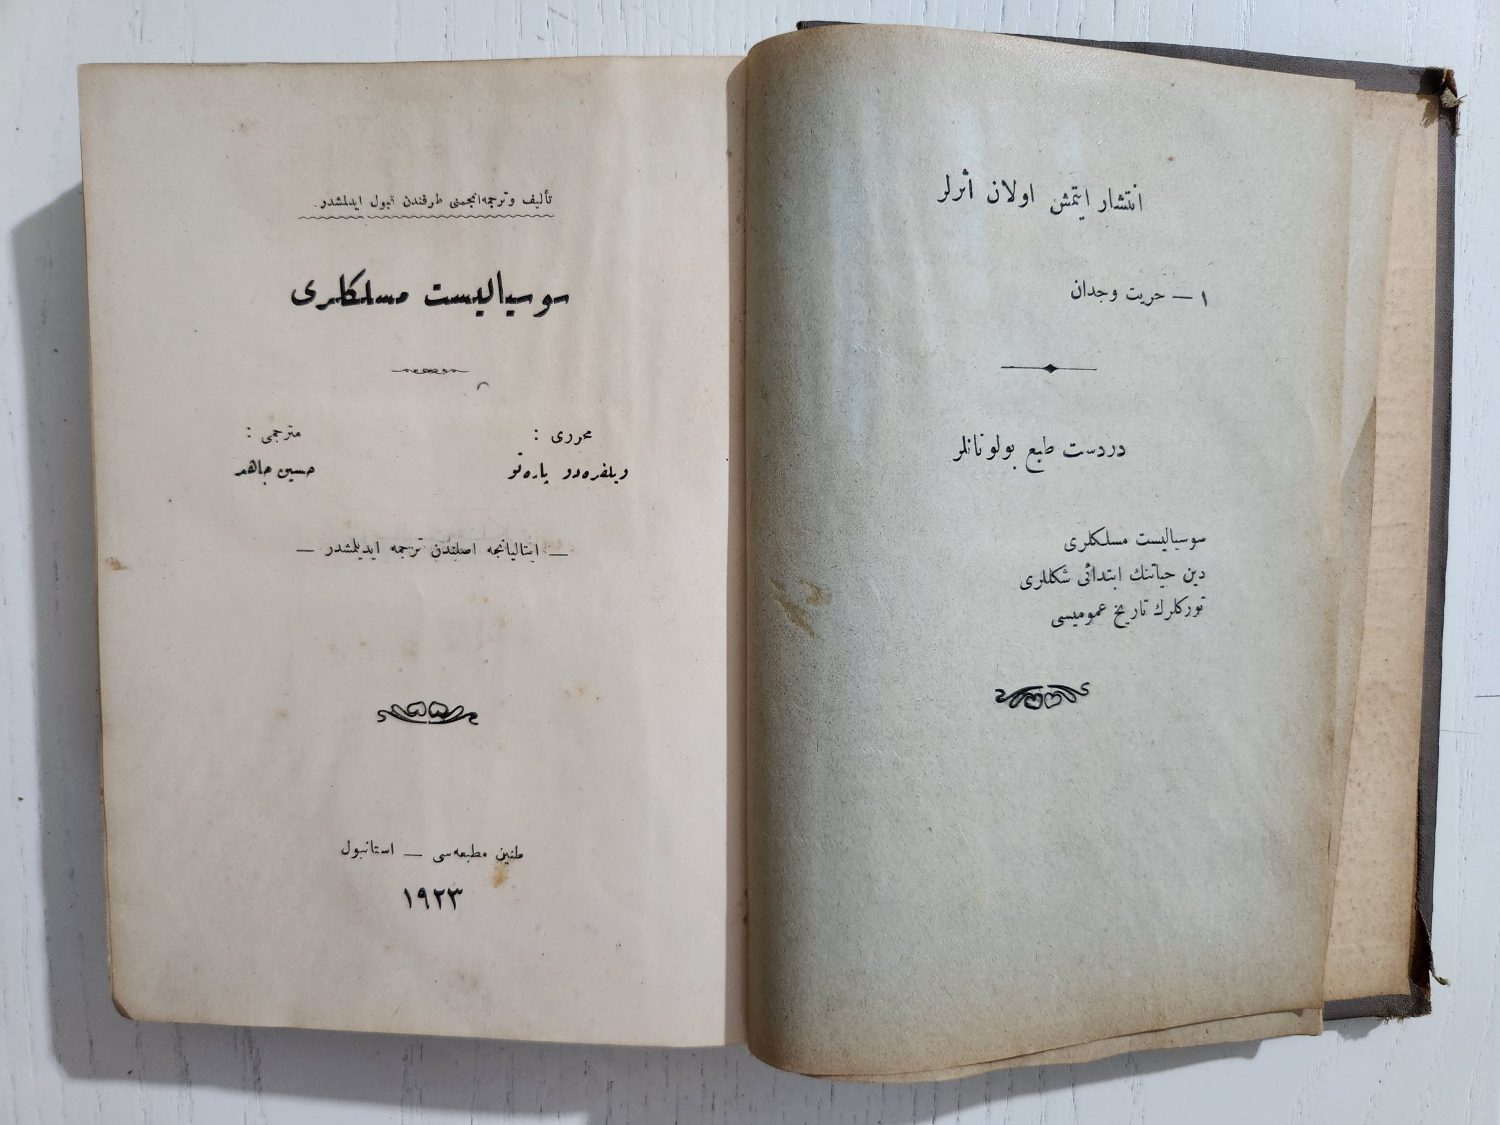 انتشار ایتمش اولان اثرلر
١ — حریت وجدان
دردست طبع بولونانلر
سوسیالیست مسلکلری
دین حیاتنك ابتدائی شکللری
تورکلرك تاریخ عمومیسی
تألیف و ترجمه انجمنی طرفندن قبول ایدلمشدر.
سوسیالیست مسلکلری
محرری :
ویلفره‌دو پاره‌تو
مترجمی :
حسین جاهد
— ایتالیانجه اصلندن ترجمه ایدیلمشدر —
طنین مطبعه‌سی — استانبول
١٩٢٣